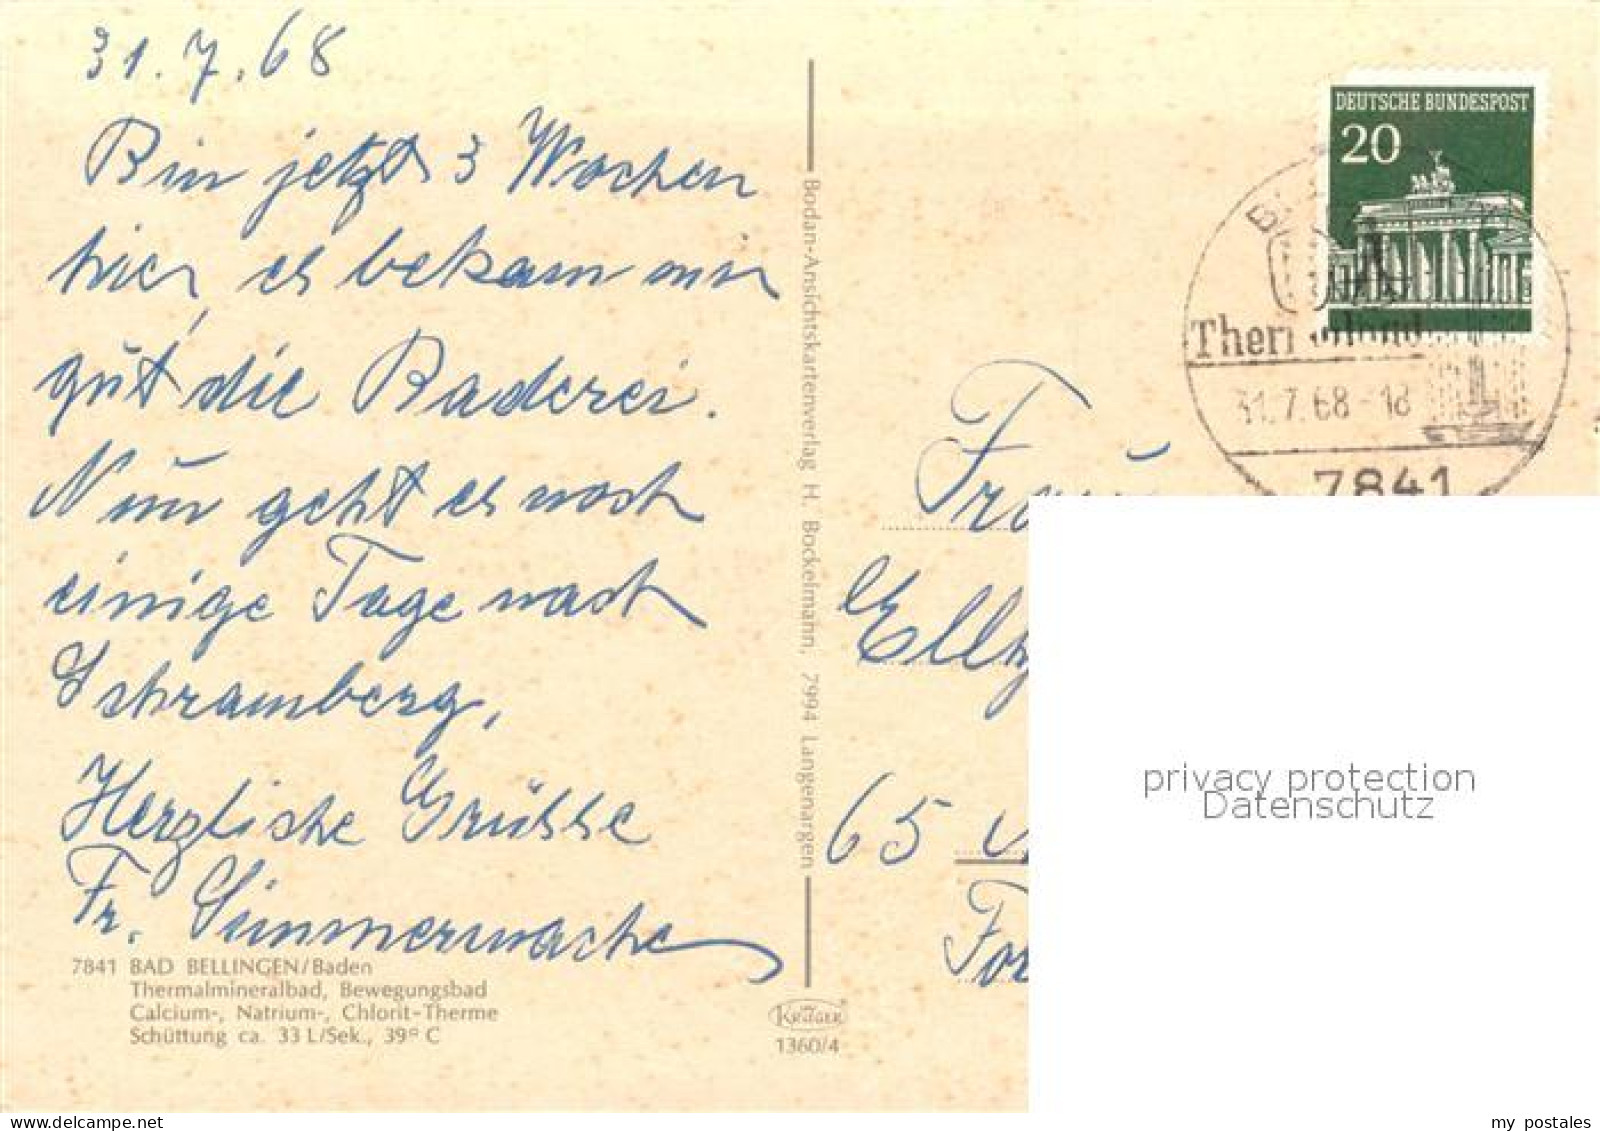 31.7.68
Bin jetzt 3 Wochen
hier, es bekam mir
gut die Baderei.
Nun geht es noch
einige Tage nach
Schramberg,
Herzliche Grüsse
Fr. Simmerwache
7841 BAD BELLINGEN/Baden
Thermalmineralbad, Bewegungsbad
Calcium-, Natrium-, Chlorit-Therme
Schüttung ca. 33 L/Sek., 39° C
Bodan-Ansichtskartenverlag H. Bockelmann, 7994 Langenargen
KRÜGER
1360/4
DEUTSCHE BUNDESPOST
20
31.7.68-18
7841
Frau
65
privacy protection
Datenschutz
www.delcampe.net
my_postales